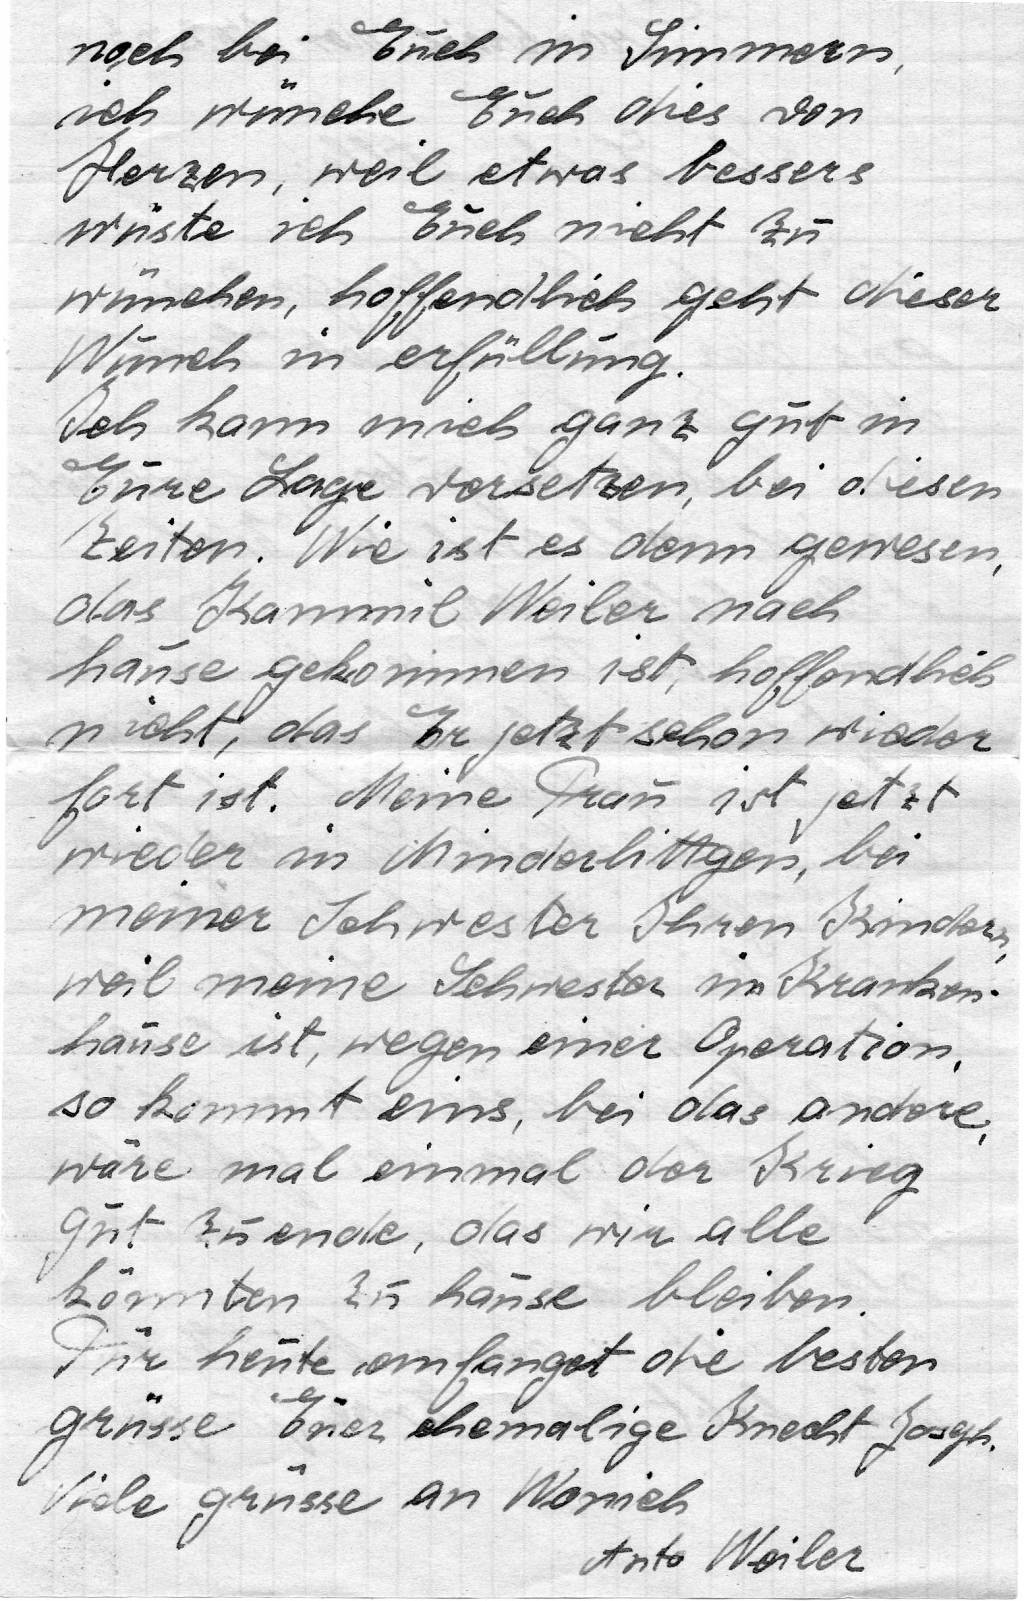 noch bei Euch in Simmern,
ich wünche Euch dies von
Herzen, weil etwas bessers
wüste ich Euch nicht zu
wünchen, hoffendlich geht dieser
Wunch in erfüllung.
Ich kann mich ganz gut in
Eure Lage versetzen, bei diesen
Zeiten. Wie ist es denn gewesen,
das Kammil Weiler nach
hause gekommen ist, hoffendlich
nicht, das Er jetzt schon wieder
fort ist. Meine Frau ist jetzt
wieder in Minderlittgen, bei
meiner Schwester Ihren Kindern,
weil meine Schwester im Kranken-
hause ist, wegen einer Operation,
so kommt eins, bei das andere,
wäre mal einmal der Krieg
gut zuende, das wir alle
könnten zu hause bleiben.
Für heute emfanget die besten
grüsse Euer ehemalige Knecht Joseph.
Viele grüsse an
Weiler